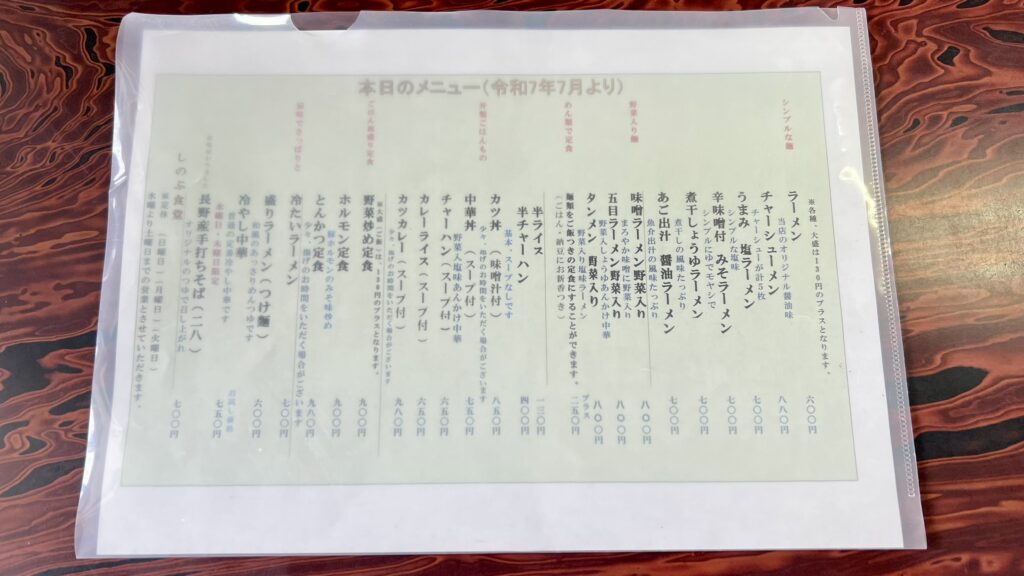 本日のメニュー(令和7年7月より)
※各種、大盛は130円のプラスとなります。
シンプルな麺
ラーメン 六〇〇円
当店のオリジナル醤油味
チャーシューメン 八八〇円
チャーシューが計5枚
うまみ 塩ラーメン 七〇〇円
シンプルな塩味
辛味噌付 みそラーメン 七〇〇円
シンプルにゆでモヤシで
煮干しょうゆラーメン 七〇〇円
煮干しの風味たっぷり
あご出汁 醤油ラーメン 七〇〇円
魚介出汁の風味たっぷり
野菜入り麺
味噌ラーメン野菜入り 八〇〇円
まろやか味噌に野菜入り
五目ラーメン野菜入り 八〇〇円
野菜入りしょうゆあんかけ中華
タンメン 野菜入り 八〇〇円
野菜入り塩味ラーメン
めん類で定食
麺類をご飯つきの定食にすることができます。 プラス 二五〇円
(ごはん・納豆にお新香つき)
半ライス 一三〇円
半チャーハン 四〇〇円
基本、スープなしです
丼類ごはんもの
カツ丼 (味噌汁付) 八五〇円
少々、揚げのお時間をいただく場合がございます
中華丼 (スープ付) 七五〇円
野菜入り塩味あんかけ中華
チャーハン(スープ付) 六五〇円
カレーライス(スープ付) 六五〇円
カツカレー(スープ付) 九八〇円
少々、揚げのお時間をいただく場合がございます
※大盛(ご飯)は130円のプラスとなります。
野菜炒め定食 九〇〇円
ホルモン定食 九〇〇円
豚辛ホルモンのみそ味炒め
とんかつ定食 九八〇円
少々、揚げのお時間をいただく場合がございます
冷たいラーメン 七〇〇円
盛りラーメン(つけ麺) 六〇〇円
和風のあっさりめのつゆです
冷やし中華 七五〇円
普通の定番冷やし中華です
木曜日・水曜日限定
長野産手打ちそば(二八) 七〇〇円
オリジナルのつゆで召し上がれ
しのぶ食堂
※定休 (日曜日)(月曜日)(火曜日)
水曜より土曜日までの営業とさせていただきます。